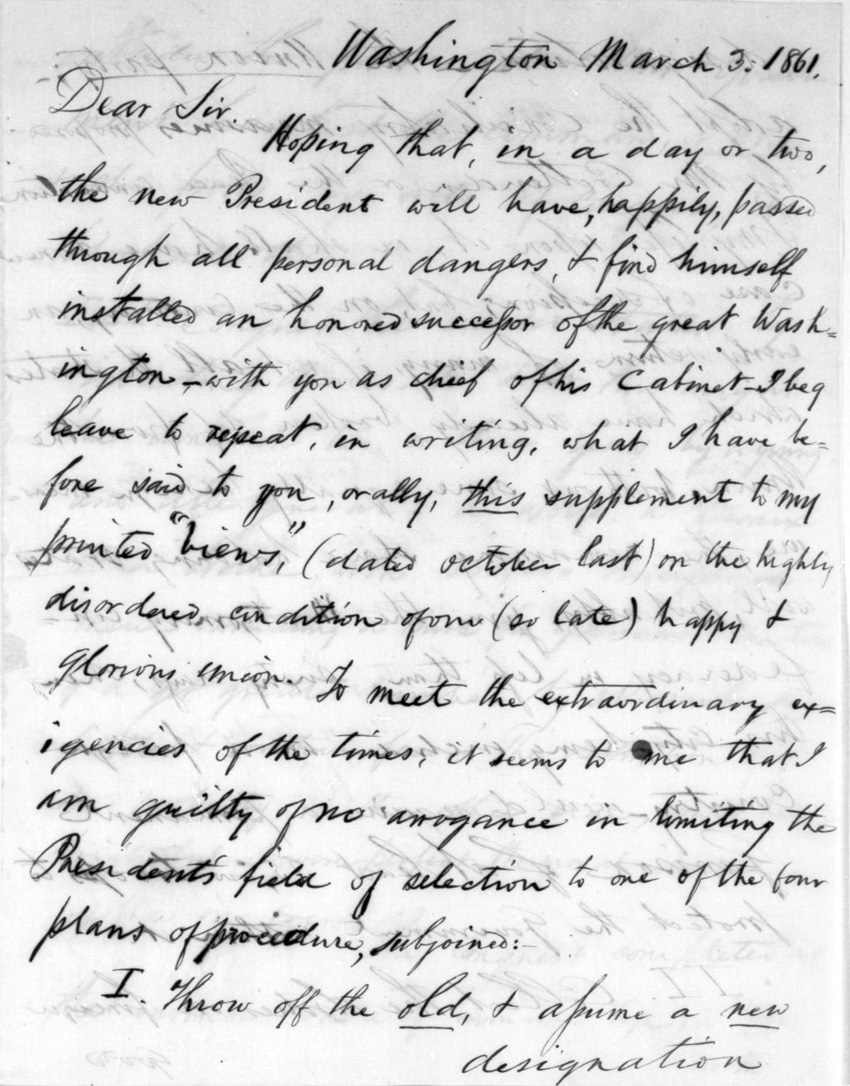 Washington March 3. 1861.
Dear Sir.
Hoping that, in a day or two,
the new President will have, happily, passed
through all personal dangers, & find himself
installed an honored successor of the great Wash=
ington – with you as chief of his Cabinet – I beg
leave to repeat, in writing, what I have be=
fore said to you, orally, this supplement to my
printed "Views," (dated October last) on the highly
disordered condition of our (so late) happy &
glorious union. To meet the extraordinary ex=
igencies of the times, it seems to me that I
am guilty of no arrogance in limiting the
President's field of selection to one of the four
plans of procedure, subjoined:–
I. Throw off the old, & assume a new
designation